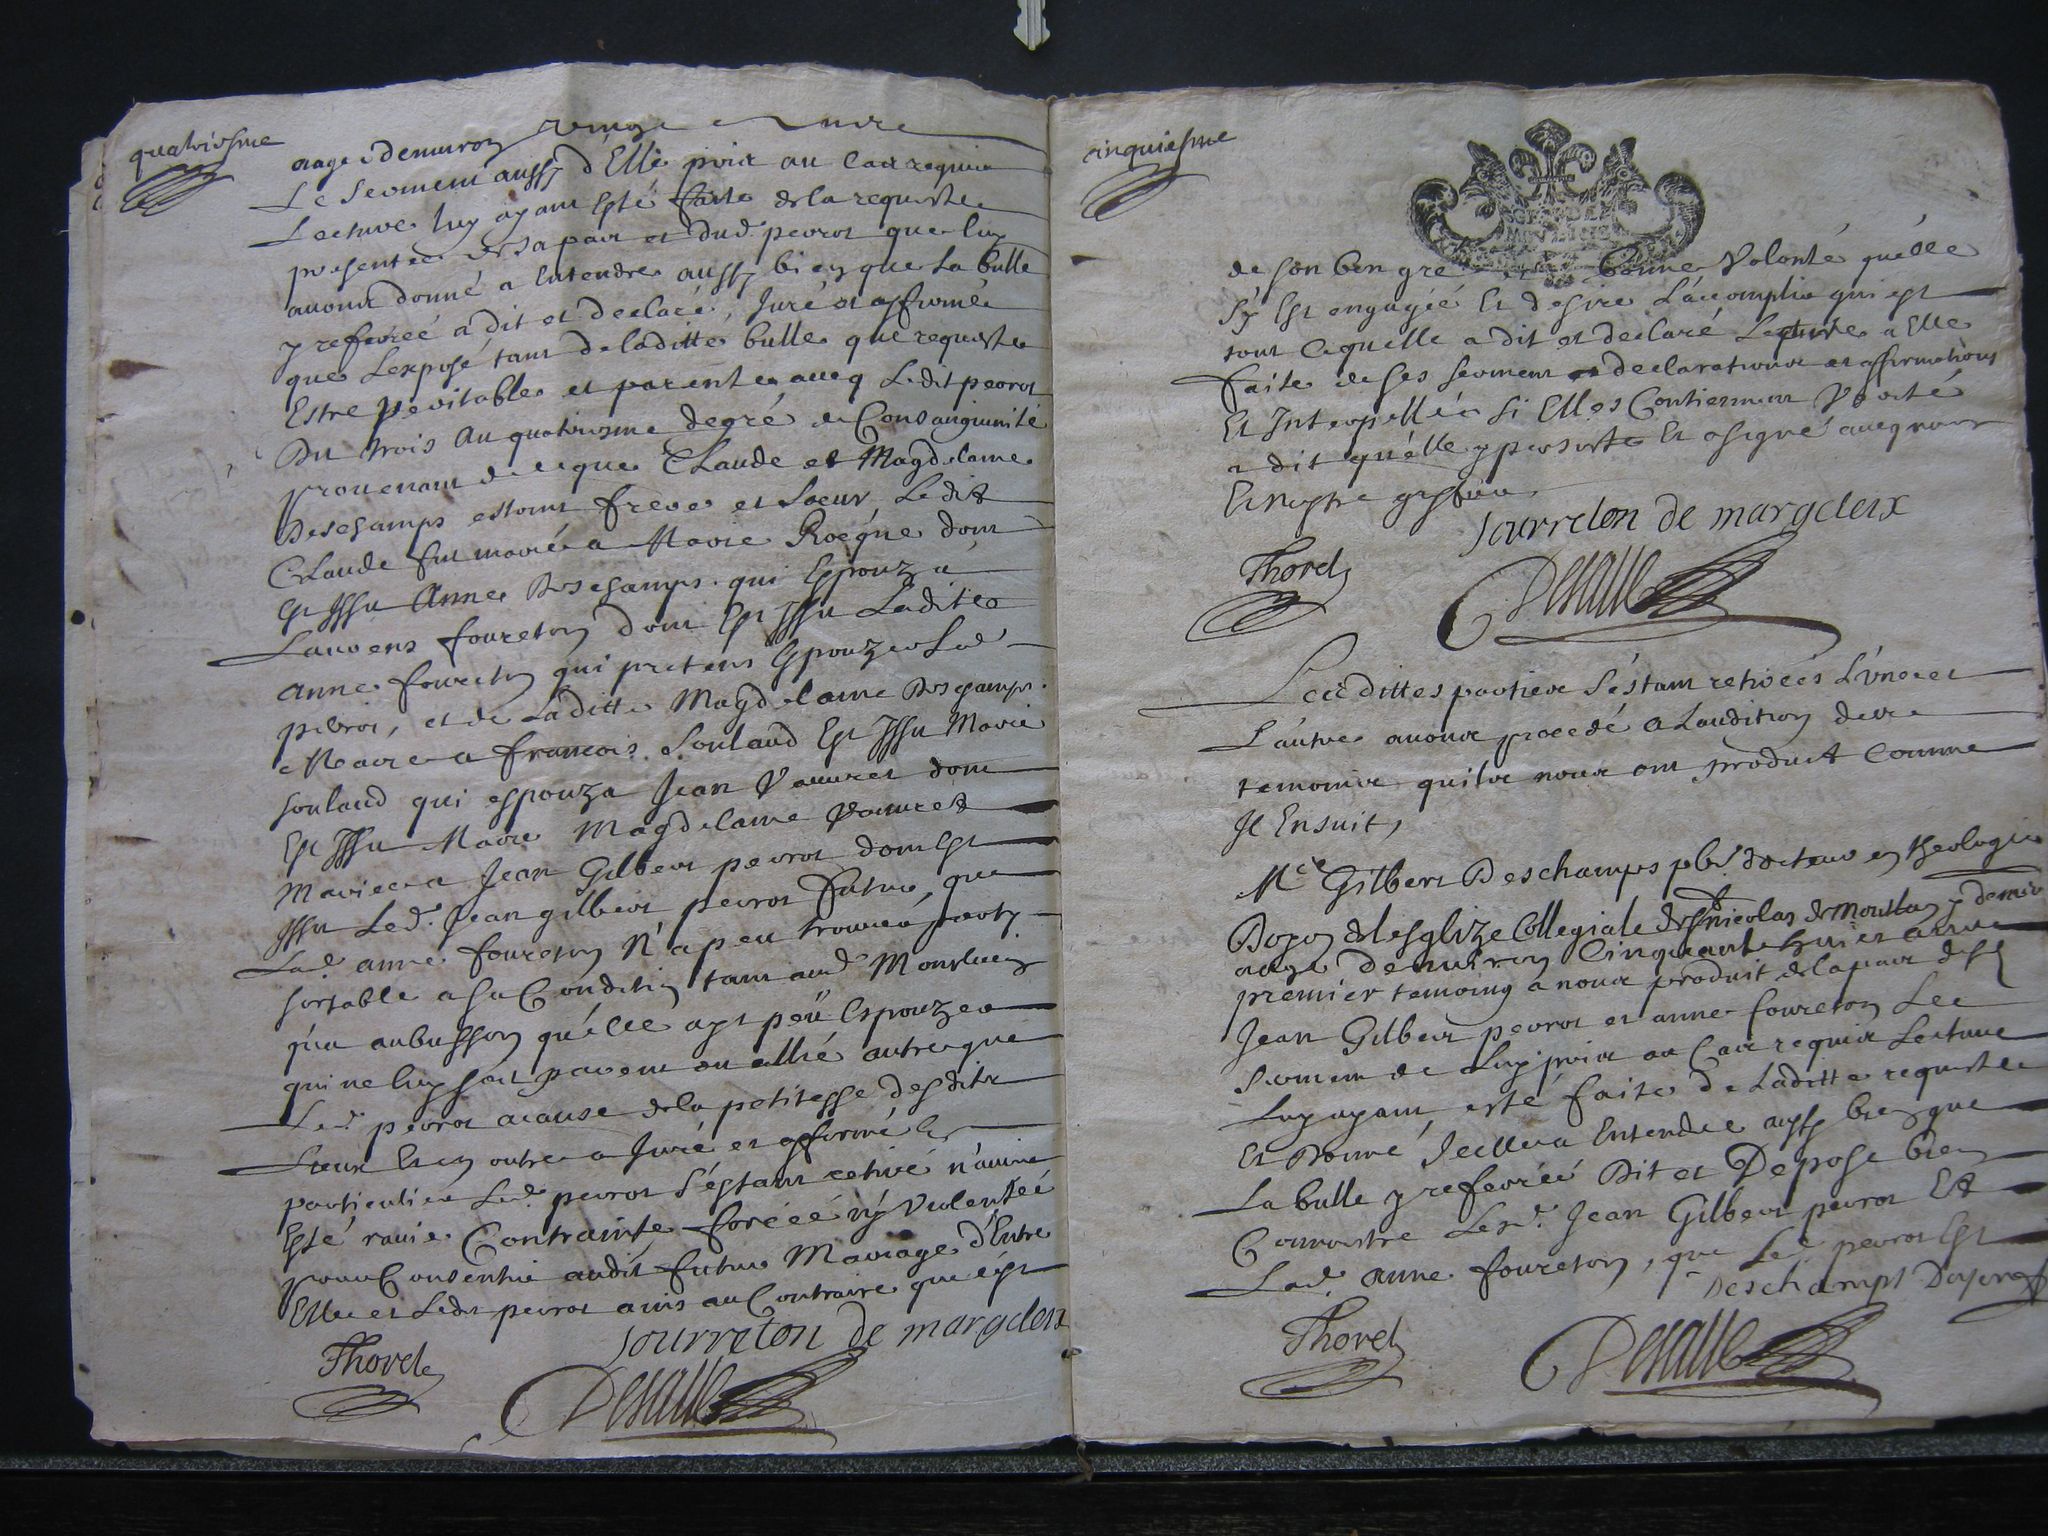 quatriesme
aagé denviron
Le serment aussy d'Elle pris au cas requis
Lecture luy ayant Esté faite de la requeste
presentée de sa part et dud. peyrot que luy
avons donné a Entendre aussy bien que La bulle
y referéé a dit et declaré, Juré et affirmé
que L'exposé tant de laditte bulle que requeste
Estre veritable et parente avecq Ledit peyrot
Du trois au quatriesme degré de Consanguinité
provenant de ce que Claude et Magdelaine
Deschamps estoint frere et soeur Ledit
Claude fut marié a Marie Rocque dont
Est Issu Anne Deschamps qui Espouza
Laurens foureton dont Est Issu Ladite
anne foureton qui pretent Espouzer Led.
peyrot, et de Laditte Magdelaine Deschamps
Mariée a francois Soulaud Est Issu Marie
Soulaud qui espouza Jean Vauvret dont
Est Issu Marie Magdelaine Vauvret
Mariée a Jean Gilbert peyrot dont Est
Issu Led. Jean gilbert peyrot futur, que
Lad. anne foureton N'a peu trouver party
sortable a sa Condition tant aud. Monluçon
qu'a aubusson qu'elle ayt peü Espouzer
qui ne luy soit parent ou allié autre que
Led. peyrot a cause de la petitesse desdits
Lieux Et en outre a Juré et affirmé En
particulier Led. peyrot s'éstant retiré n'avoir
Esté ravie Contrainte forcéé ny Violentéé
pour Consentir audit futur Mariage d'Entre
Elle et Ledit peyrot ains au Contraire que c'est
fourreton de margeleix
Thorel
Desalle
cinquiesme
de son bon gré et bonne Volonté qu'elle
s'y Est engagéé Et desire L'accomplir qui est
tout ce quelle a dit et declaré Lecture a Elle
faite de ses serment declarations et affirmations
Et Interpellée si Elles Contiennent Verité
a dit qu'elle y persiste Et a signé avecq nous
Et nostre greffier
fourreton de margeleix
Thorel
Desalle
Lesdittes parties s'éstant retiréés L'une et
L'autre avons procedé a Laudition des
temoins quils nous ont produit Comme
Il Ensuit,
Mre Gilbert Deschamps pbr. docteur en theologie
Doyen de lesglize Collegiale de St nicolas de Montluçon y demeur
aagé denviron Cinquante huict annes
premier temoing a nous produit de la part desd
Jean Gilbert peyrot et anne foureton Le
serment de Luy pris au Cas requis Lecture
Luy ayant esté faite de Laditte requeste
Et Donné Icelle a Entendre aussy bien que
La bulle y referéé Dit et Depose bien
Connoistre Led. Jean Gilbert peyrot Et
Lad. anne foureton, que Led. peyrot Est
Deschamps Doyen
Thorel
Desalle